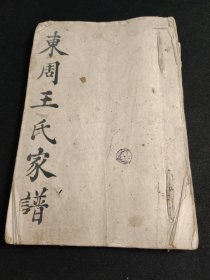 東周王氏家譜